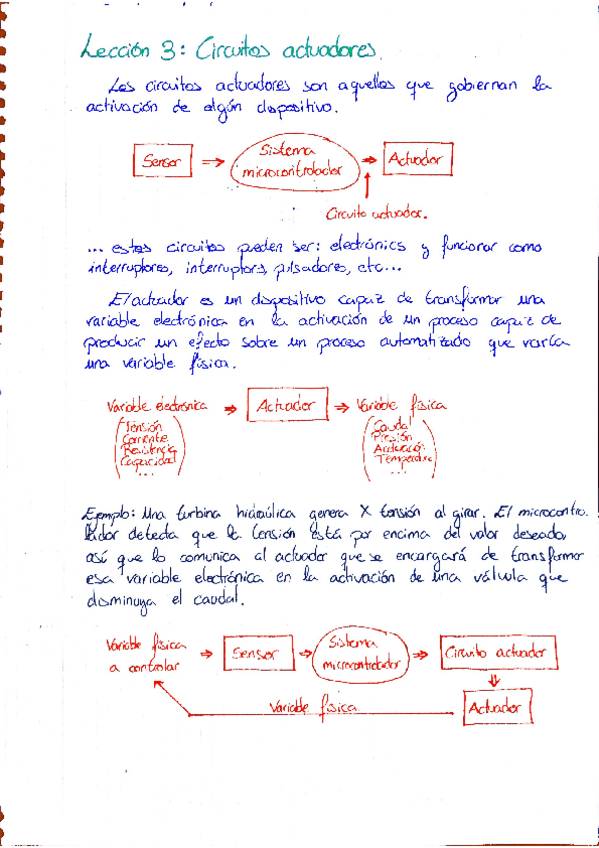 Lección 3: Circuitos actuadores.
Los circuitos actuadores son aquellos que gobiernan la
activación de algún dispositivo.
Sensor ⇒ Sistema microcontrolador → Actuador
Circuito actuador.
... estos circuitos pueden ser: electrónics y funcionar como
interruptores, interruptors, pulsadores, etc...
El actuador es un dispositivo capaz de transformar una
variable electrónica en la activación de un proceso capaz de
producir un efecto sobre un proceso automatizado que varía
una variable física.
Variable electrónica ⇒ Actuador ⇒ Variable física
Tensión
Corriente
Resistencia
Capacidad
...
Caudal
Presión
Aceleración
Temperatura
...
Ejemplo: Una turbina hidráulica genera X tensión al girar. El microcontro.
lador detecta que la tensión está por encima del valor deseado
así que lo comunica al actuador que se encargará de transformar
esa variable electrónica en la activación de una válvula que
disminuya el caudal.
Variable física
a controlar ⇒ Sensor ⇒ Sistema microcontrolador ⇒ Circuito actuador
Variable física
Actuador